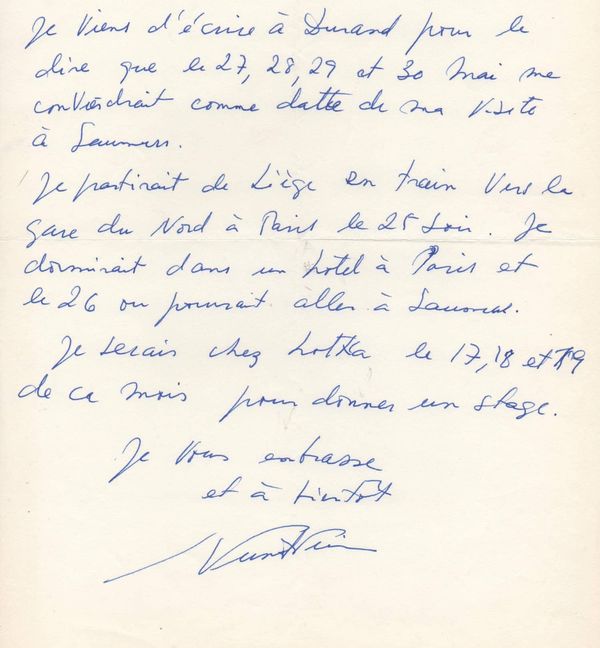 Je viens d'écrire à Durand pour le
dire que le 27, 28, 29 et 30 Mai me
conviedrait comme datte de ma visite
à Saumur.
Je partirait de Liège en train vers la
gare du Nord à Paris le 25 soir. Je
dormirait dans un hotel à Paris et
le 26 on pourait aller à Saumur.
Je serais chez Lotka le 17, 18 et 19
de ce mois pour donner un stage.
Je vous embrasse
et à bientôt